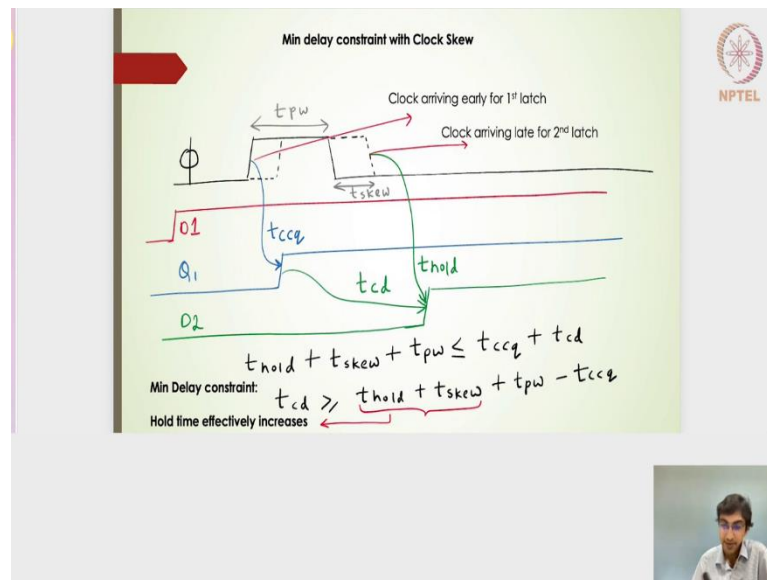 Min delay constraint with Clock Skew
NPTEL
Clock arriving early for 1st latch
tpw
Clock arriving late for 2nd latch
Φ
tskew
D1
tccq
Q1
thold
tcd
D2
thold + tskew + tpw ≤ tccq + tcd
Min Delay constraint: tcd ⩾ thold + tskew + tpw - tccq
Hold time effectively increases